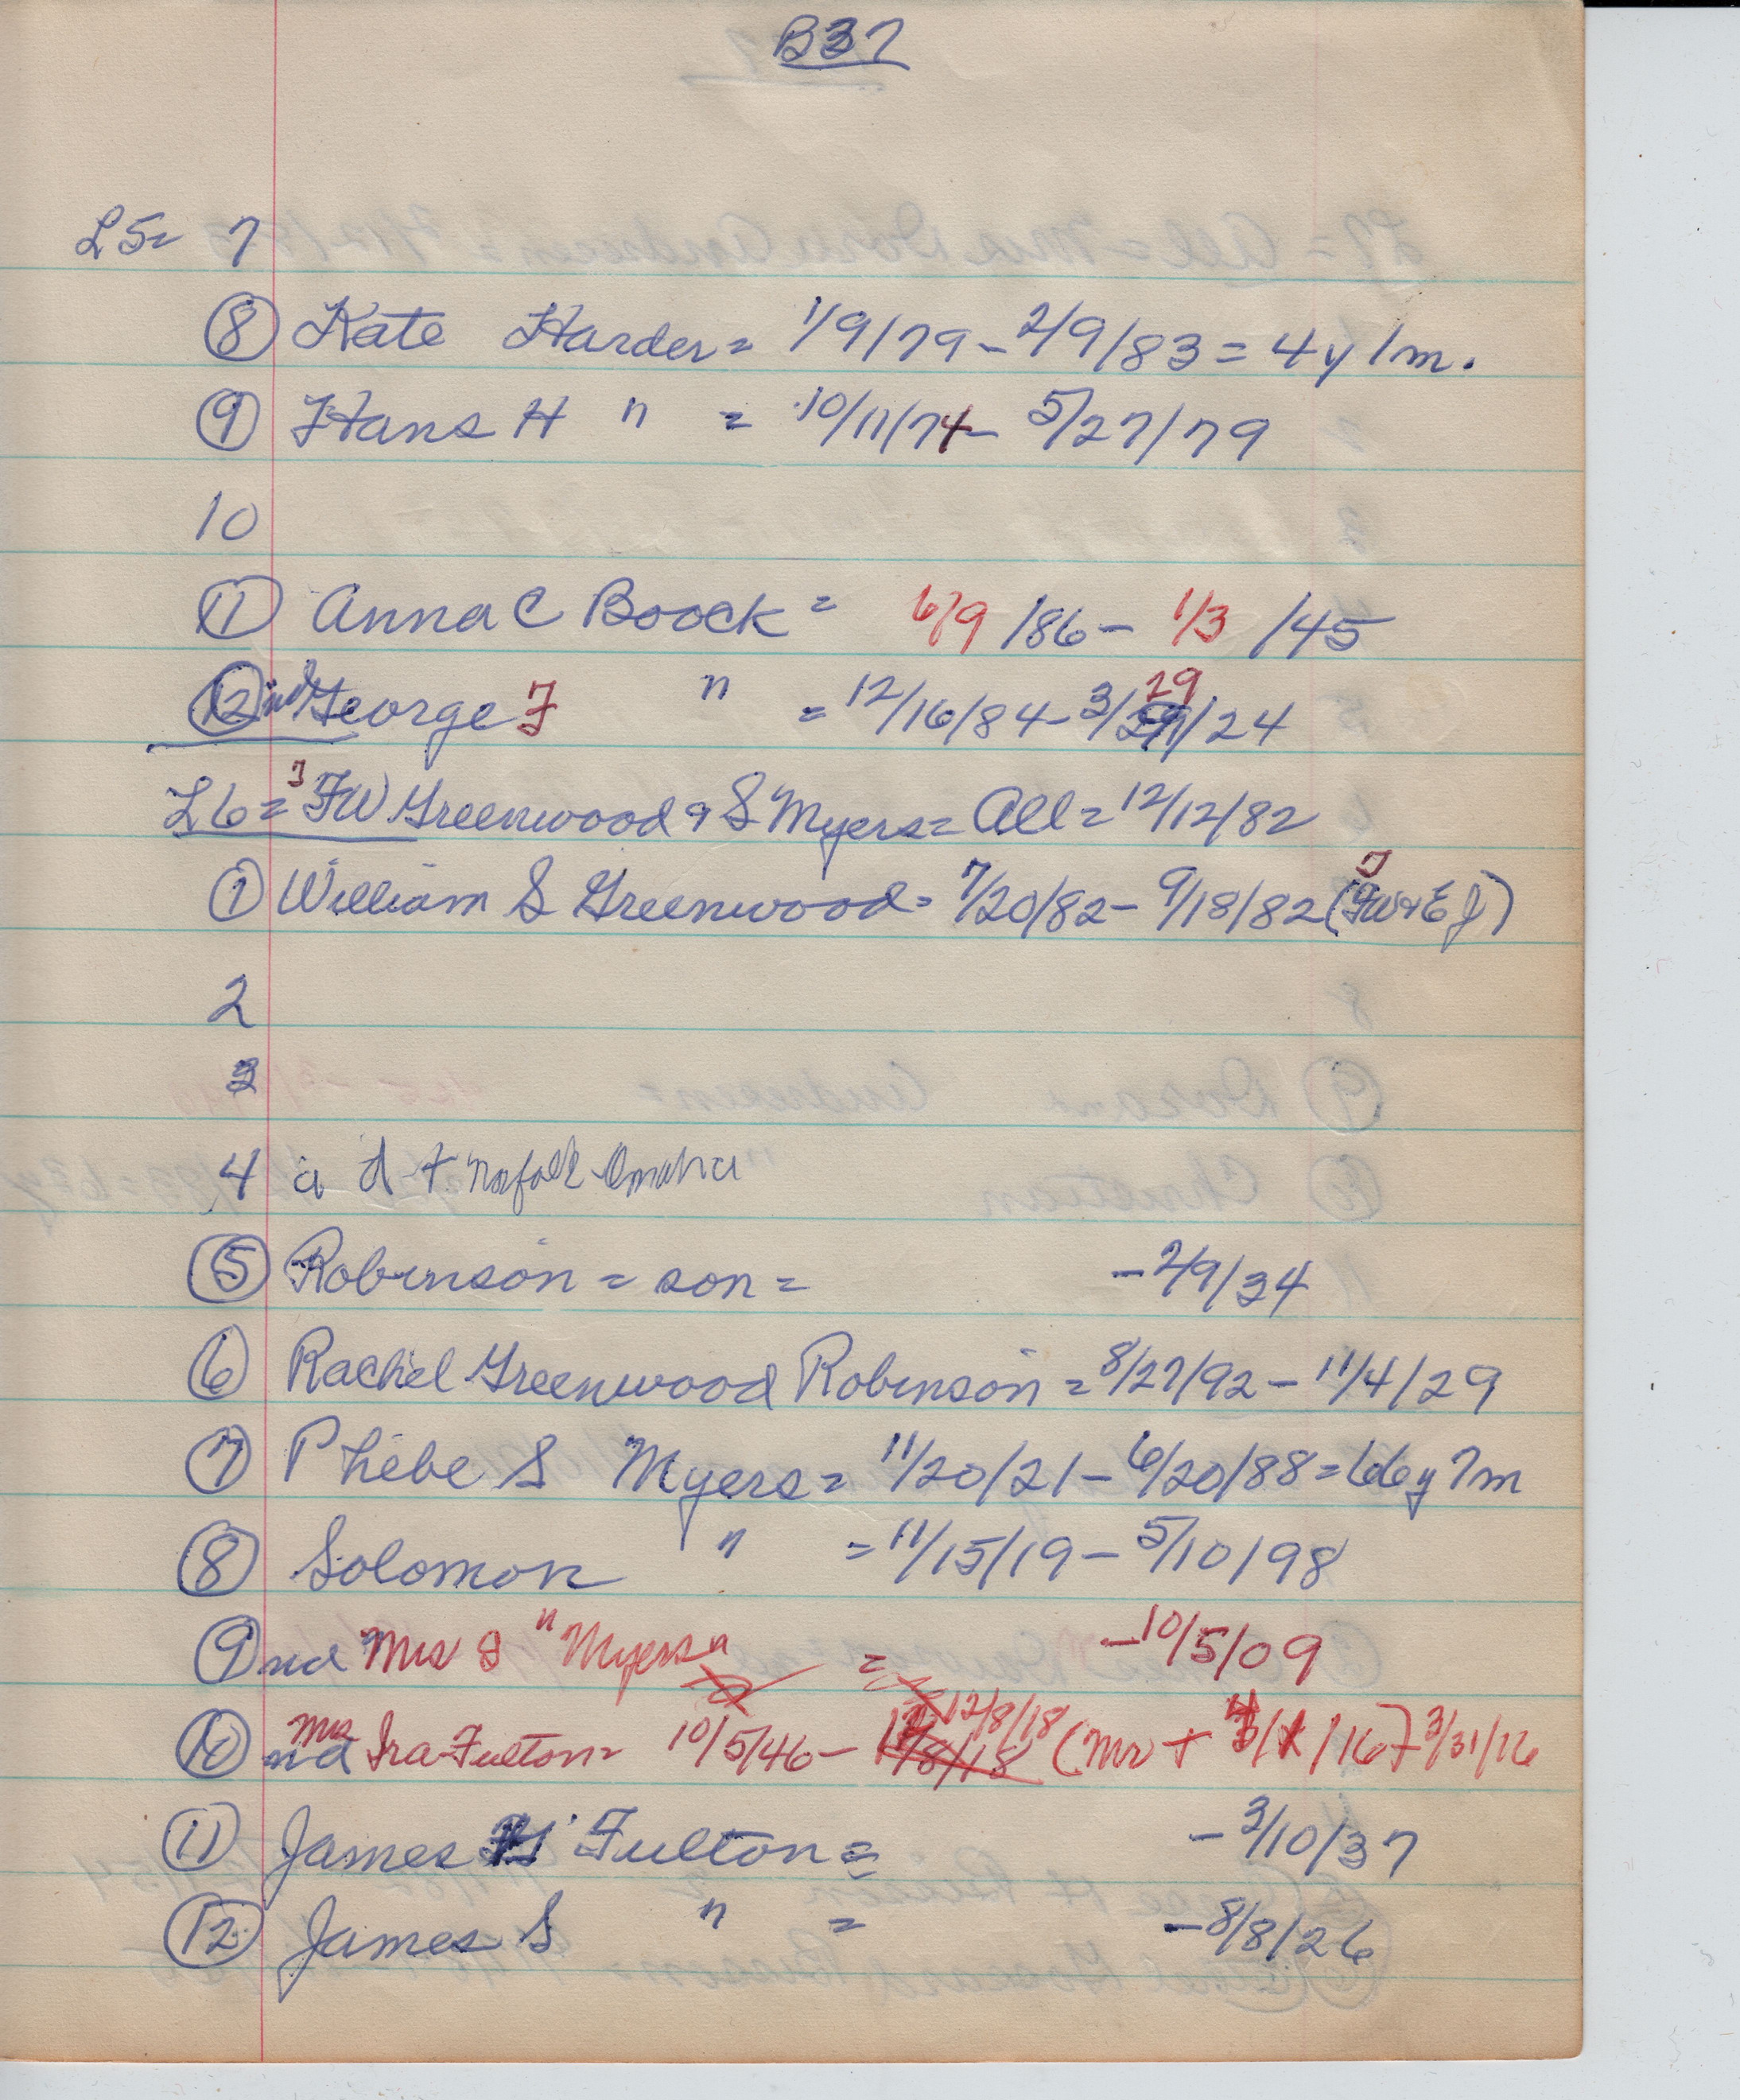 B37
L5= 7
8 Kate Harder = 1/9/79 - 2/9/83 = 4y 1m.
9 Hans H " = 10/11/74 - 5/27/79
10
11 Anna C Boock = 6/9/86 - 1/3/45
12 nd George F " = 12/16/84 - 3/29/24
L6 = J FW Greenwood & S Myers = All = 12/12/82
1 William S Greenwood = 7/20/82 - 9/18/82 (J FW & E J)
2
3
4 a d + Norfolk Omaha
5 Robinson = son = - 2/9/34
6 Rachel Greenwood Robinson = 8/27/92 - 11/4/29
7 Phebe S Myers = 11/20/21 - 6/20/88 = 66y 7m
8 Solomon " = 11/15/19 - 5/10/98
9 nd Mrs S " Myers = - 10/5/09
10 nd Mrs Ira Fulton = 10/5/46 - 12/8/18 (Mr + /16) 3/31/16
11 James Fulton = - 3/10/37
12 James S " = - 8/8/26